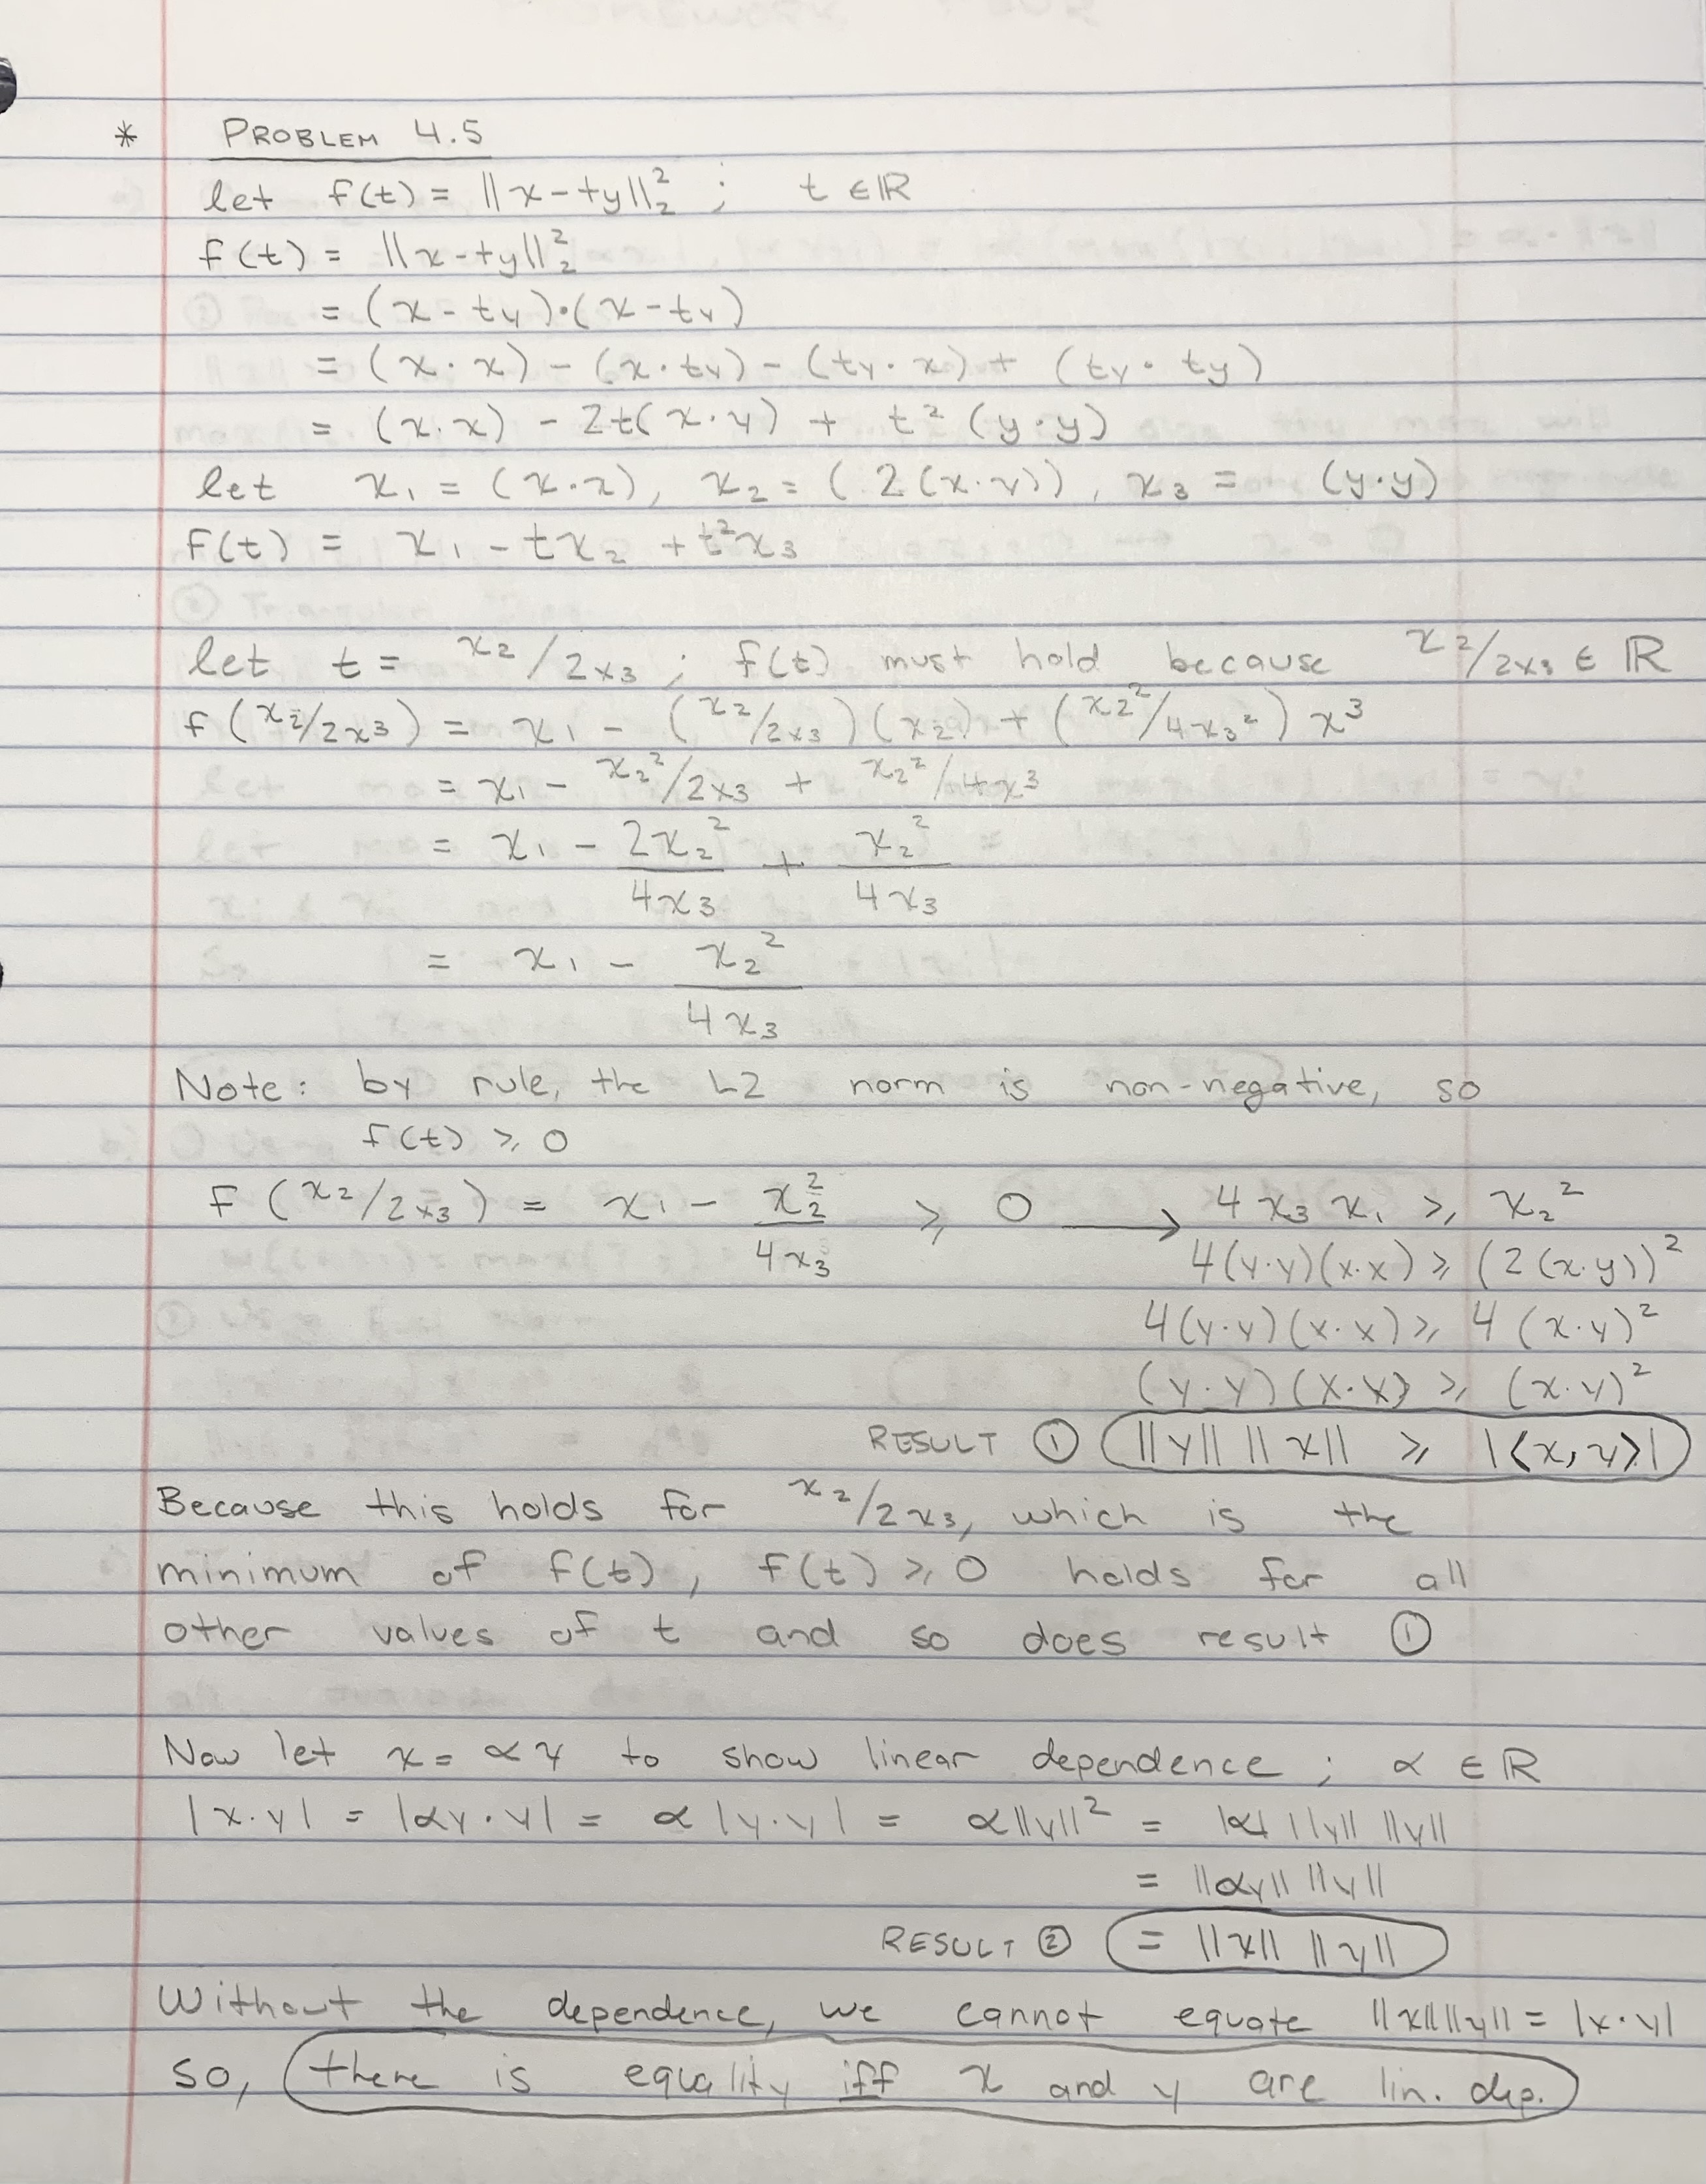 * PROBLEM 4.5
let f(t) = ||x-ty||₂² ; t ∈ ℝ
f(t) = ||x-ty||₂²
= (x - ty)·(x - ty)
= (x · x) - (x · ty) - (ty · x) + (ty · ty)
= (x·x) - 2t(x·y) + t² (y·y)
let x₁ = (x·x), x₂ = (2(x·y)), x₃ = (y·y)
f(t) = x₁ - tx₂ + t²x₃
let t = x₂/2x₃ ; f(t) must hold because x₂/2x₃ ∈ ℝ
f(x₂/2x₃) = x₁ - (x₂/2x₃)(x₂) + (x₂²/4x₃²) x³
= x₁ - x₂²/2x₃ + x₂²/4x³
= x₁ - 2x₂²/4x₃ + x₂²/4x₃
= x₁ - x₂²/4x₃
Note: by rule, the L2 norm is non-negative, so
f(t) ≥ 0
f(x₂/2x₃) = x₁ - x₂²/4x₃ ≥ 0 → 4x₃x₁ ≥ x₂²
4(y·y)(x·x) ≥ (2(x·y))²
4(y·y)(x·x) ≥ 4(x·y)²
(y·y)(x·x) ≥ (x·y)²
RESULT ① ||y|| ||x|| ≥ |⟨x,y⟩|
Because this holds for x₂/2x₃, which is the
minimum of f(t), f(t) ≥ 0 holds for all
other values of t and so does result ①
Now let x = αy to show linear dependence ; α ∈ ℝ
|x·y| = |αy·y| = α|y·y| = α||y||² = |α| ||y|| ||y||
= ||αy|| ||y||
RESULT ② = ||x|| ||y||
Without the dependence, we cannot equate ||x||||y|| = |x·y|
so, there is equality iff x and y are lin. dep.